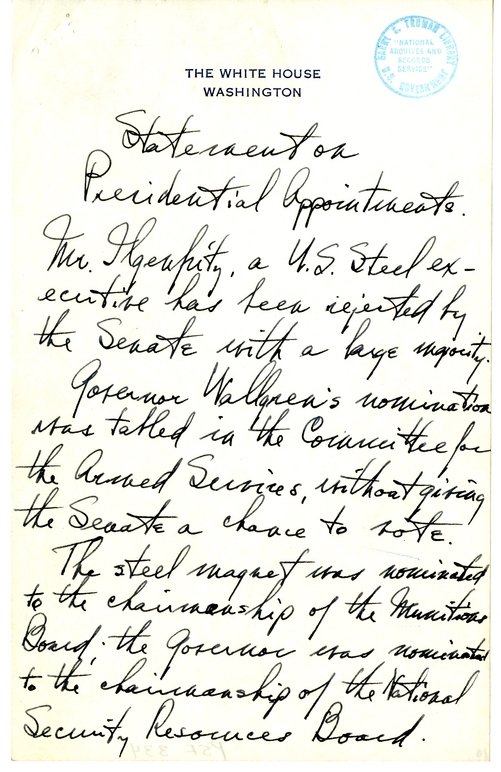 THE WHITE HOUSE
WASHINGTON
HARRY S. TRUMAN LIBRARY
"NATIONAL
ARCHIVES AND
RECORDS
SERVICE"
U.S. GOVERNMENT
Statement on
Presidential Appointments.
Mr. Ilgenfritz, a U.S. Steel ex-
ecutive has been rejected by
the Senate with a large majority.
Governor Wallgren's nomination
was tabled in the Committee for
the Armed Services, without giving
the Senate a chance to vote.
The steel magnet was nominated
to the chairmanship of the Munitions
Board; the Governor was nominated
to the chairmanship of the National
Security Resources Board.